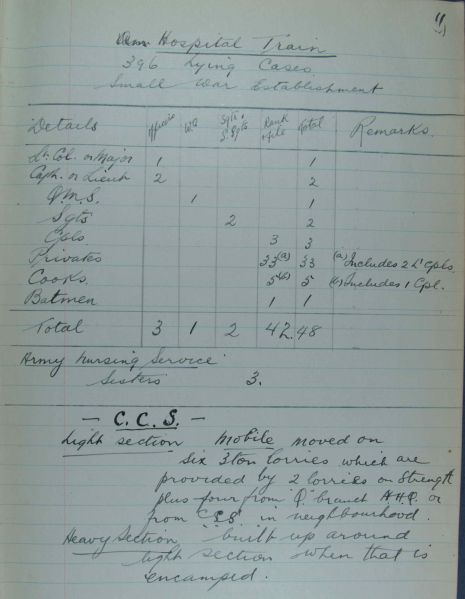 11
Hospital Train
396 Lying Cases
Small War Establishment
Details Officers W.O Sgts & S. Sgts Rank & file Total Remarks.
Lt. Col. or Major 1 1
Capt. or Lieut 2 2
Q.M.S. 1 1
Sgts 2 2
Cpls 3 3
Privates 33(a) 33 (a) Includes 2 L' Cpls.
Cooks 5(b) 5 (b) Includes 1 Cpl.
Batmen 1 1
Total 3 1 2 42. 48
Army Nursing Service
Sisters 3.
— C.C.S. —
Light section Mobile moved on
six 3 ton lorries which are
provided by 2 lorries on strength
plus four from Q. branch AHQ. or
from CCS. in neighbourhood.
Heavy Section built up around
light section when that is
encamped.